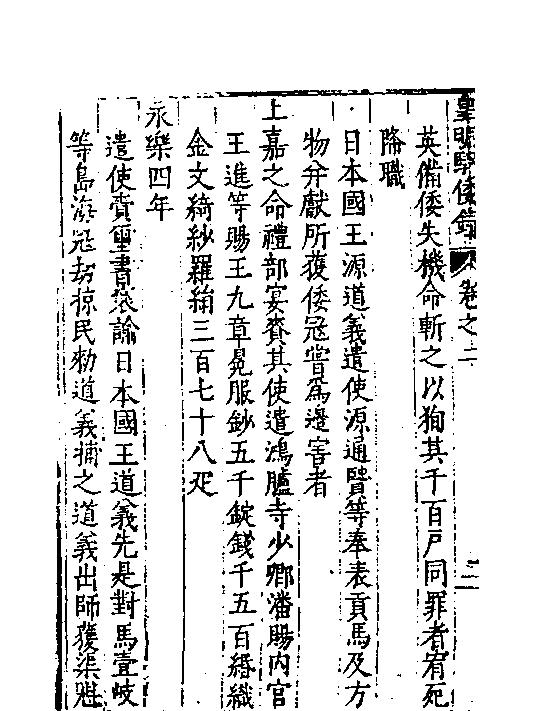 皇明馭倭錄 卷之二 二
英備倭失機命斬之以狥其千百戶同罪者宥死
降職
日本國王源道義遣使源通賢等奉表貢馬及方
物并獻所獲倭寇嘗為邊害者
上嘉之命禮部宴賚其使遣鴻臚寺少卿潘賜內官
王進等賜王九章冕服鈔五千錠錢千五百緡織
金文綺紗羅絹三百七十八疋
永樂四年
遣使賫璽書褒諭日本國王道義先是對馬壹岐
等島海寇劫掠民勑道義捕之道義出師獲渠魁